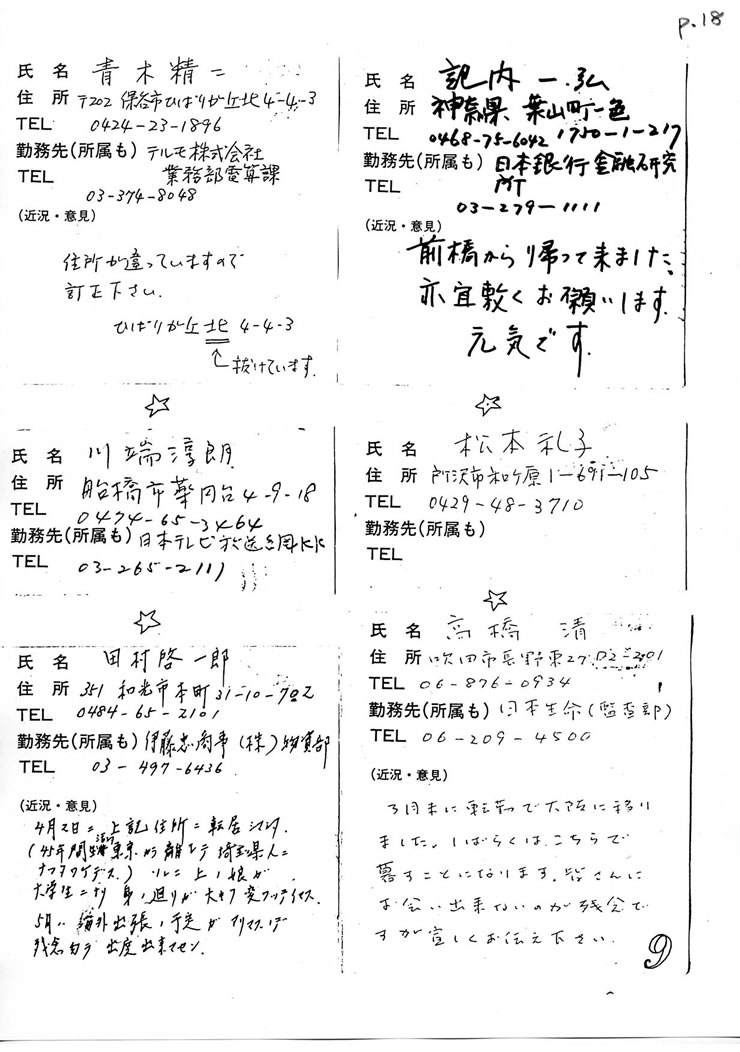 p.18
氏 名 青木精二
住 所 〒202 保谷市ひばりが丘北4-4-3
TEL 0424-23-1896
勤務先(所属も) テルモ株式会社
業務部電算課
TEL 03-374-8048
(近況・意見)
住所が違っていますので
訂正下さい.
ひばりが丘北 4-4-3
抜けています.
氏 名 記内 一弘
住 所 神奈県 葉山町一色
1750-1-217
TEL 0468-75-6042
勤務先(所属も) 日本銀行金融研究
所
TEL 03-279-1111
(近況・意見)
前橋から帰って来ました.
亦宜敷くお願いします.
元気です.
☆
☆
氏 名 川端淳朗
住 所 船橋市薬円台4-9-18
TEL 0474-65-3464
勤務先(所属も) 日本テレビ放送網KK
TEL 03-265-2111
氏 名 松本礼子
住 所 所沢市和ヶ原1-691-105
TEL 0429-48-3710
勤務先(所属も)
TEL
☆
☆
氏 名 田村啓一郎
住 所 351 和光市本町31-10-702
TEL 0484-65-2101
勤務先(所属も) 伊藤忠商事(株)物資部
TEL 03-497-6436
(近況・意見)
4月2日ニ 上記住所ニ転居シマシタ.
(45年間 東京カラ離レテ埼玉県人ニ
ソレニ上ノ娘ガ
大学生ニナリ 身ノ廻リガ大キク変
5月ハ 海外出張ノ予定ガアリマスノデ
残念 出席出来マセン.
氏 名 高橋 清
住 所 吹田市長野東27 D2-201
TEL 06-876-0934
勤務先(所属も) 日本生命(監査部)
TEL 06-209-4500
(近況・意見)
3月末に転勤で大阪に移り
ました。しばらくは、こちらで
暮すことになります。皆さんに
お会い出来ないのが残念で
すが宜しくお伝え下さい.
9